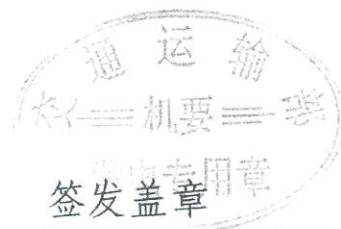 通运输
机要
专用章
签发盖章